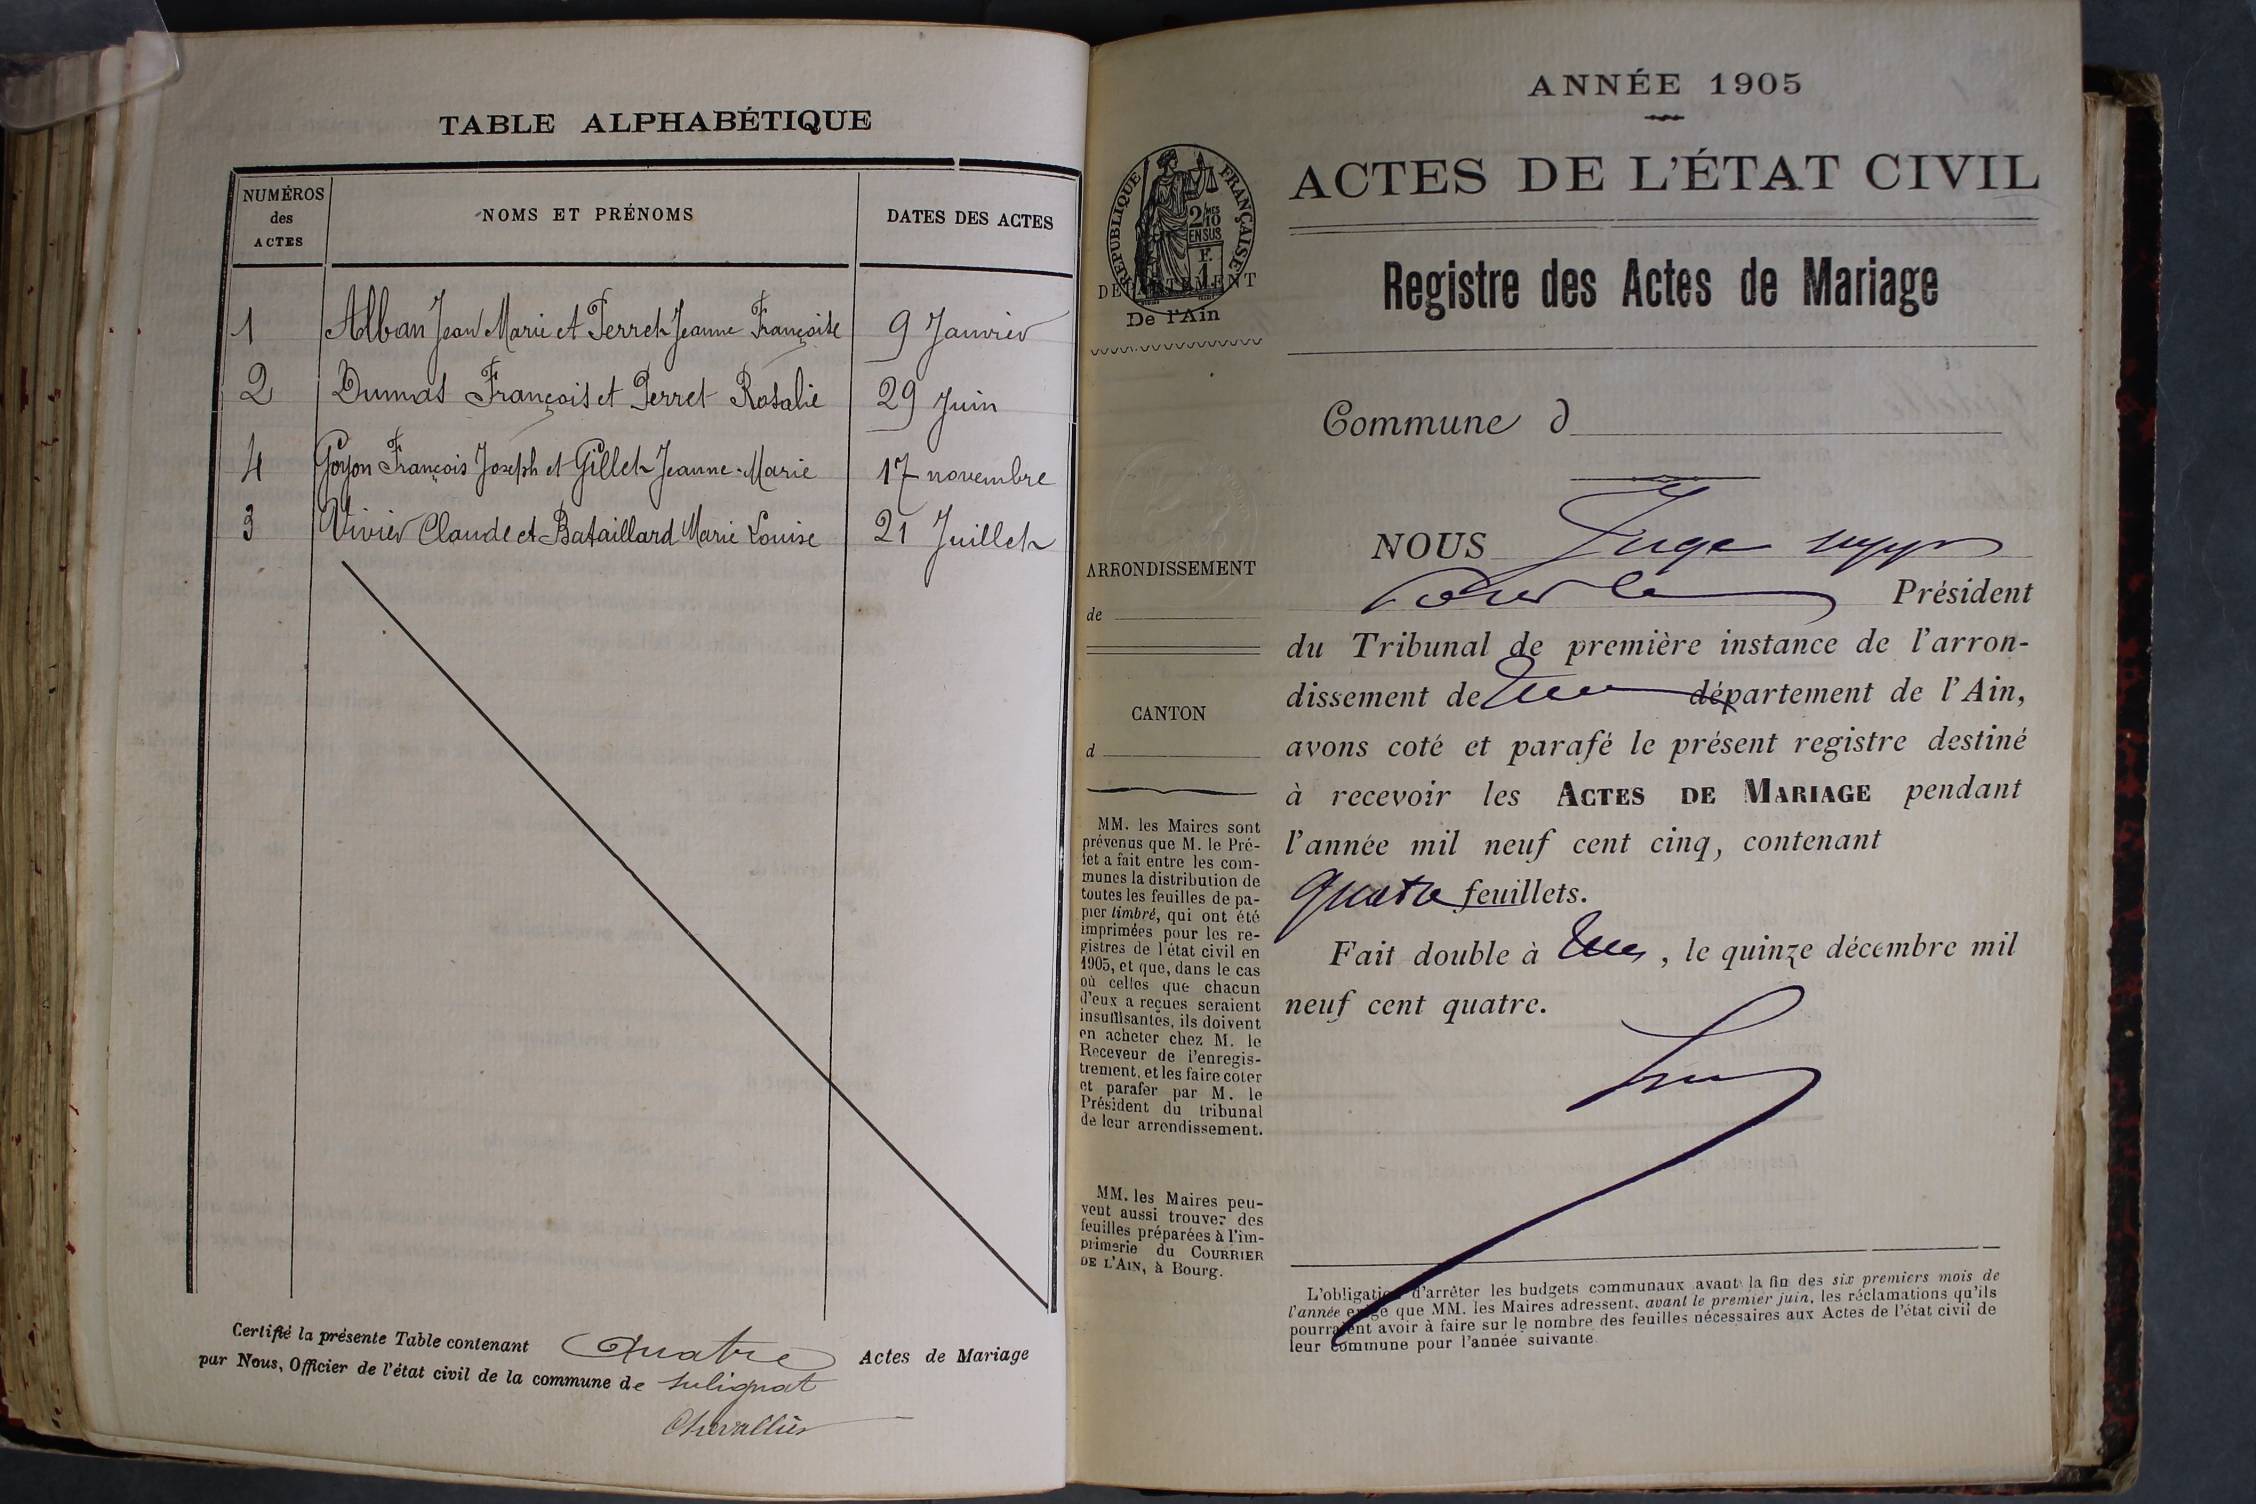 TABLE ALPHABÉTIQUE
NUMÉROS
des
ACTES
NOMS ET PRÉNOMS
DATES DES ACTES
1 Alban Jean Marie et Perret Jeanne Françoise 9 Janvier
2 Dumas François et Perret Rosalie 29 Juin
4 Goyon François Joseph et Gillet Jeanne-Marie 17 novembre
3 Vivier Claude et Bataillard Marie Louise 21 Juillet
Certifié la présente Table contenant Quatre Actes de Mariage
par Nous, Officier de l'état civil de la commune de Sulignat
Chevallier
ANNÉE 1905
ACTES DE L'ÉTAT CIVIL
RÉPUBLIQUE FRANÇAISE
2/10 MES
EN SUS
1 F.
DÉPARTEMENT
De l'Ain
Registre des Actes de Mariage
Commune d
ARRONDISSEMENT
de
CANTON
d
MM. les Maires sont
prévenus que M. le Pré-
fet a fait entre les com-
munes la distribution de
toutes les feuilles de pa-
pier timbré, qui ont été
imprimées pour les re-
gistres de l'état civil en
1905, et que, dans le cas
où celles que chacun
d'eux a reçues seraient
insuffisantes, ils doivent
en acheter chez M. le
Receveur de l'enregis-
trement, et les faire coter
et parafer par M. le
Président du tribunal
de leur arrondissement.
MM. les Maires peu-
vent aussi trouver des
feuilles préparées à l'im-
primerie du COURRIER
DE L'AIN, à Bourg.
NOUS Juge
Président
du Tribunal de première instance de l'arron-
dissement de département de l'Ain,
avons coté et parafé le présent registre destiné
à recevoir les ACTES DE MARIAGE pendant
l'année mil neuf cent cinq, contenant
quatre feuillets.
Fait double à , le quinze décembre mil
neuf cent quatre.
L'obligation d'arrêter les budgets communaux avant la fin des six premiers mois de
l'année exige que MM. les Maires adressent, avant le premier juin, les réclamations qu'ils
pourraient avoir à faire sur le nombre des feuilles nécessaires aux Actes de l'état civil de
leur commune pour l'année suivante